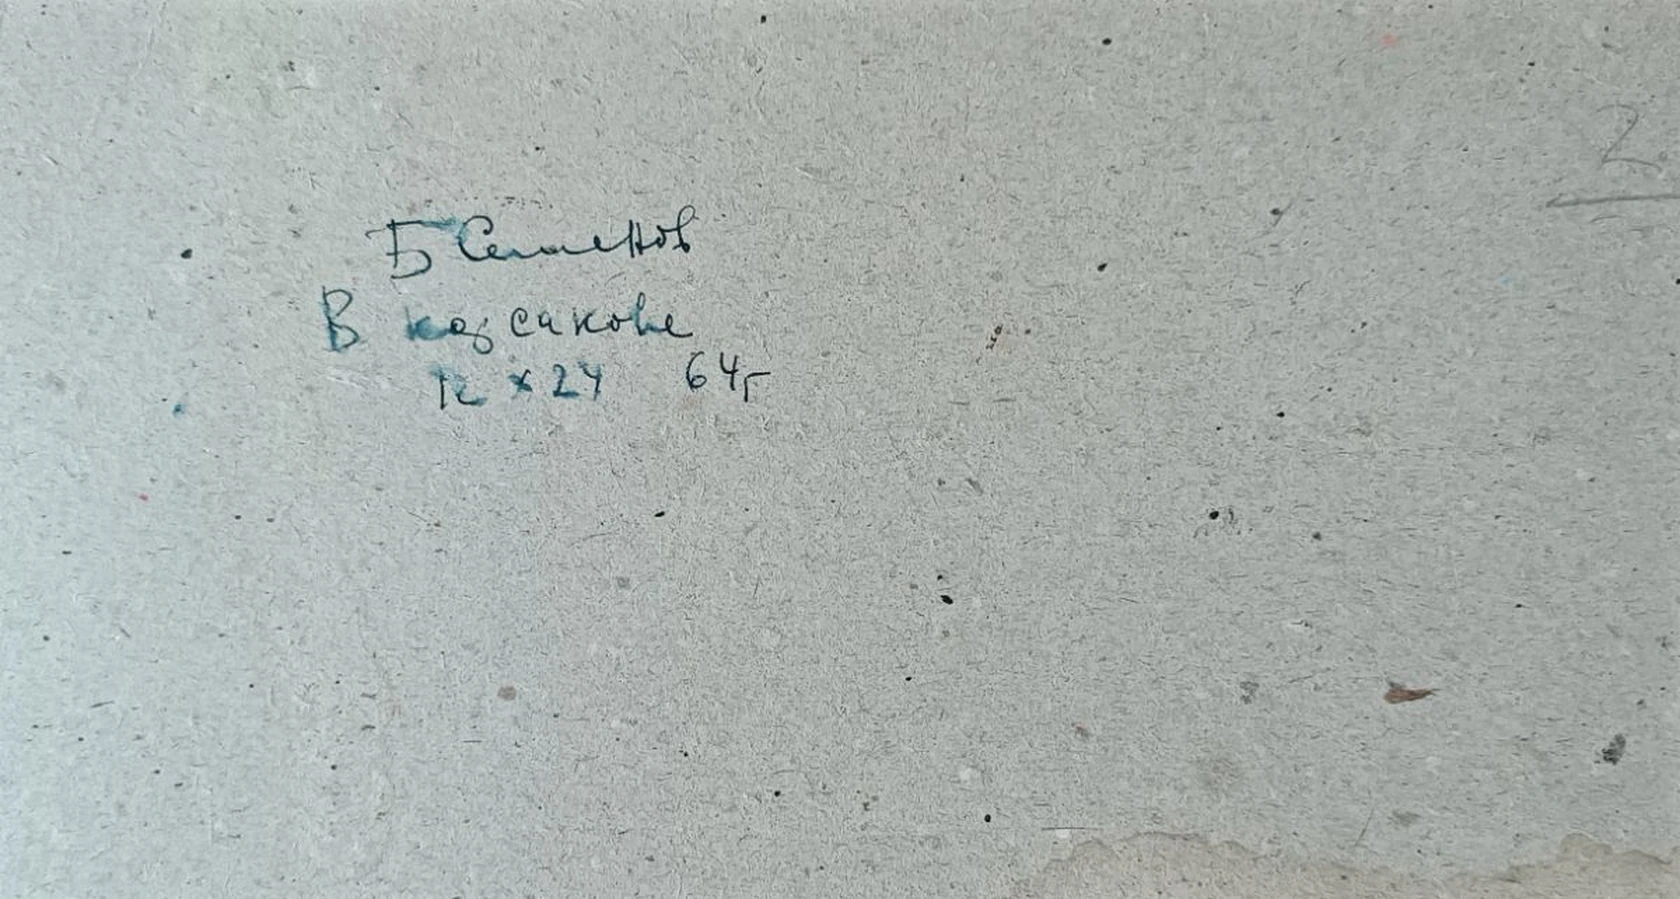 2
Б Семенов
В корсакове
12 х 24 64г